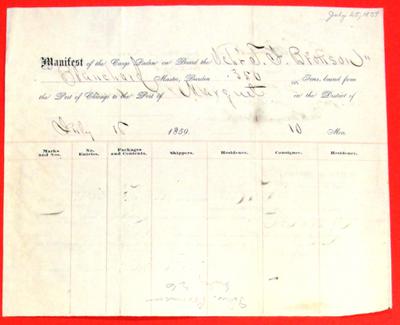 July 25, 1859
Manifest of the Cargo Laden on Board the Schr. T. F. Bronson"
Blanchard Master, Burden 350 Tons, bound from
the Port of Chicago to the Port of Marquet in the District of
July 16 1859. 10 Men.
Marks and Nos. No. Entries. Packages and Contents. Shippers. Residence. Consignee. Residence.